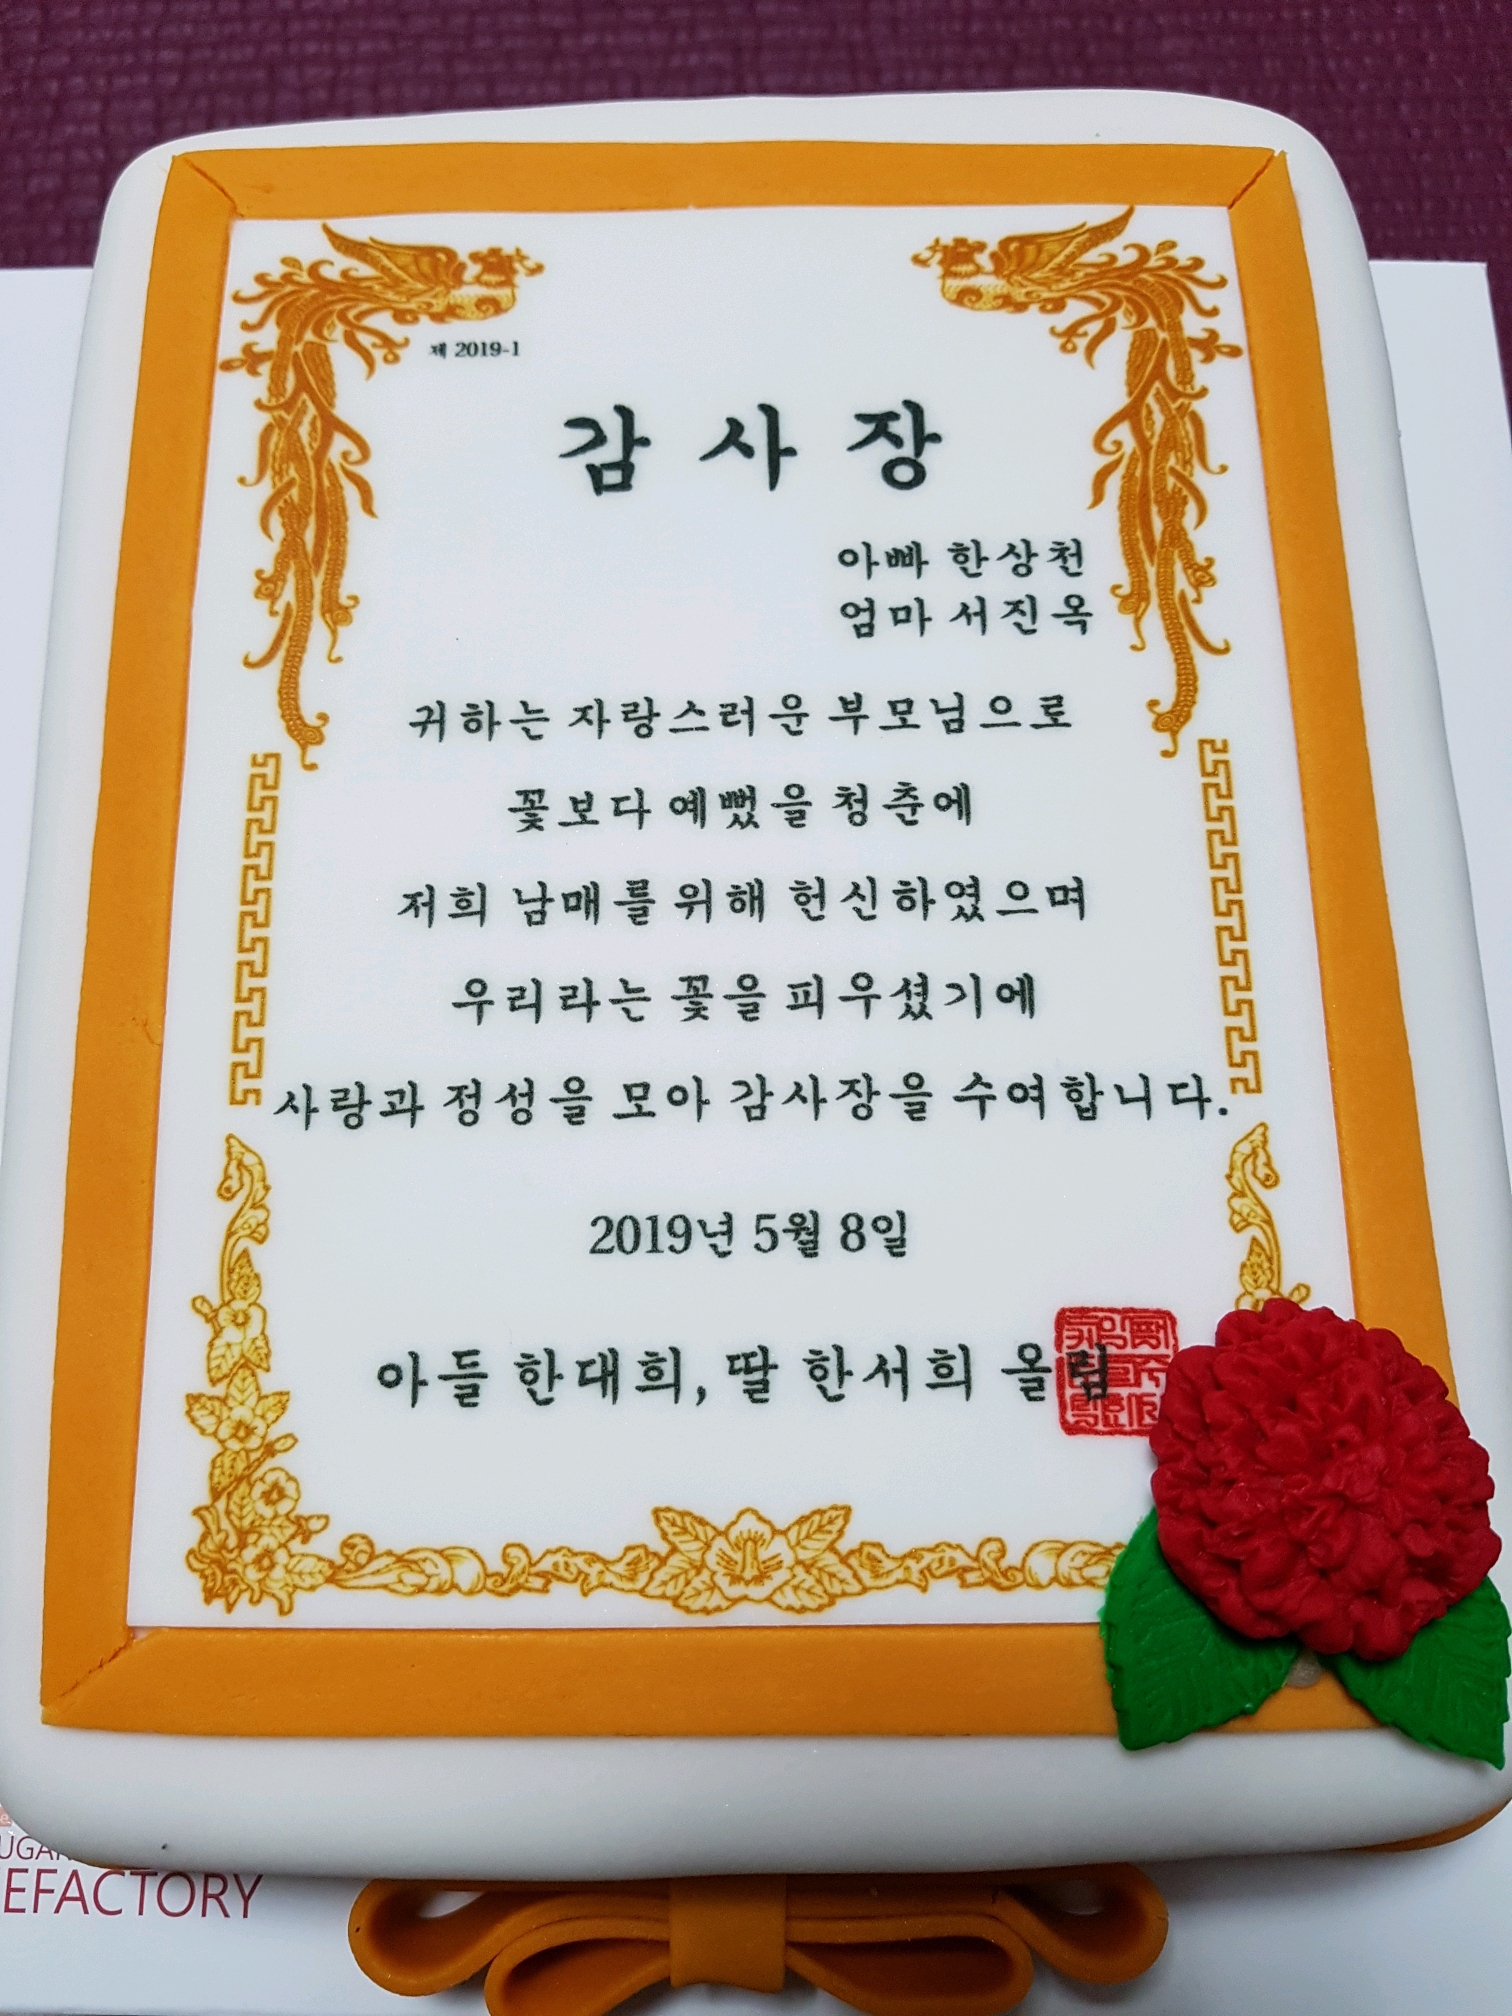 제 2019-1
감 사 장
아빠 한상천
엄마 서진옥
귀하는 자랑스러운 부모님으로
꽃보다 예뻤을 청춘에
저희 남매를 위해 헌신하였으며
우리라는 꽃을 피우셨기에
사랑과 정성을 모아 감사장을 수여합니다.
2019년 5월 8일
아들 한대희, 딸 한서희 올림
EFACTORY